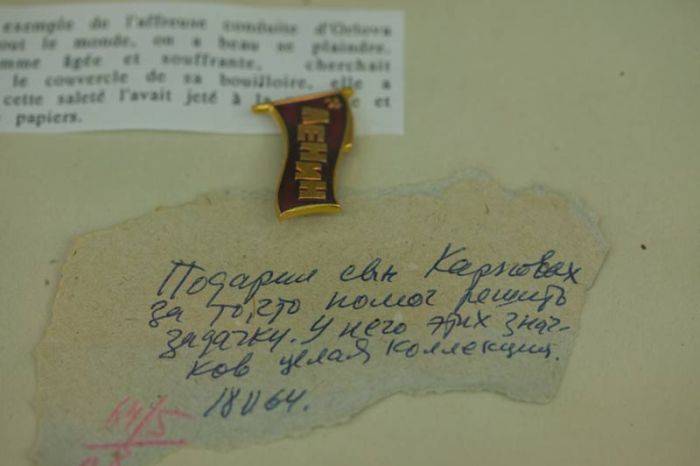 exemple de l'affreuse conduite d'Orlova
out le monde, on a beau se plaindre.
mme âgée et souffrante, cherchait
le couvercle de sa bouilloire, elle a
cette saleté l'avait jeté à la et
papiers.
ЛЕНИН
Подарил сын Карповых
за то, что помог решить
задачку. У него этих знач-
ков целая коллекция.
18 V 64.